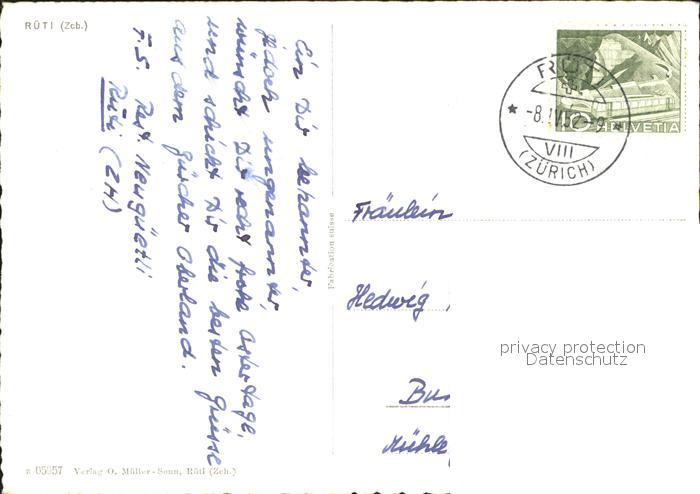 RÜTI (Zch.)
Ein Dir bekannter,
jedoch ungenannter,
wünscht Dir recht frohe Ostertage,
und schickt Dir die besten Grüsse
aus dem Zürcher Oberland.
Rest.
Rüti (ZH)
z 05057 Verlag O. Müller-Senn, Rüti (Zch.)
Fabrication suisse
HELVETIA
-8.IV.52-9
VIII
(ZÜRICH)
Fräulein
Hedwig
privacy protection
Datenschutz
Mühle